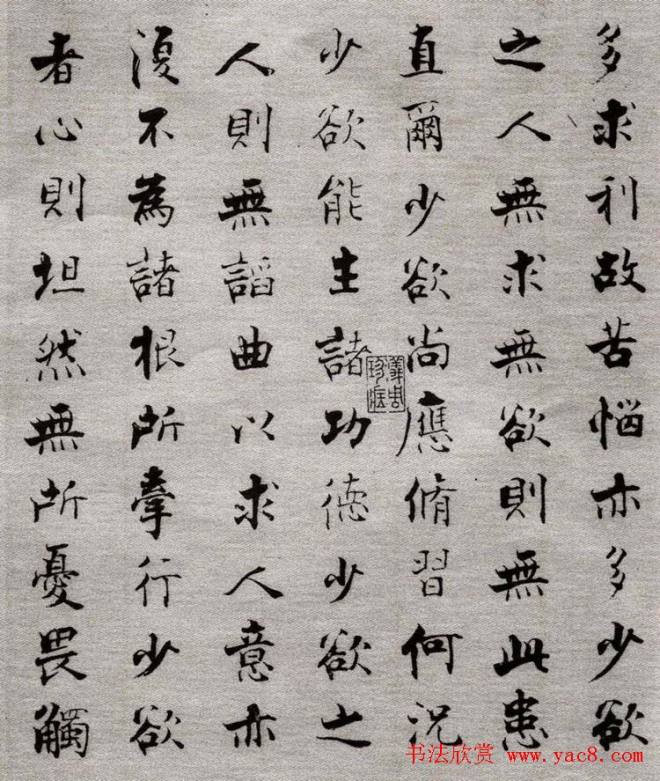 多求利故苦惱亦多少欲
之人無求無欲則無此患
直爾少欲尚應脩習何況
少欲能生諸功德少欲之
人則無謟曲以求人意亦
復不為諸根所牽行少欲
者心則坦然無所憂畏觸
书法欣赏 www.yac8.com